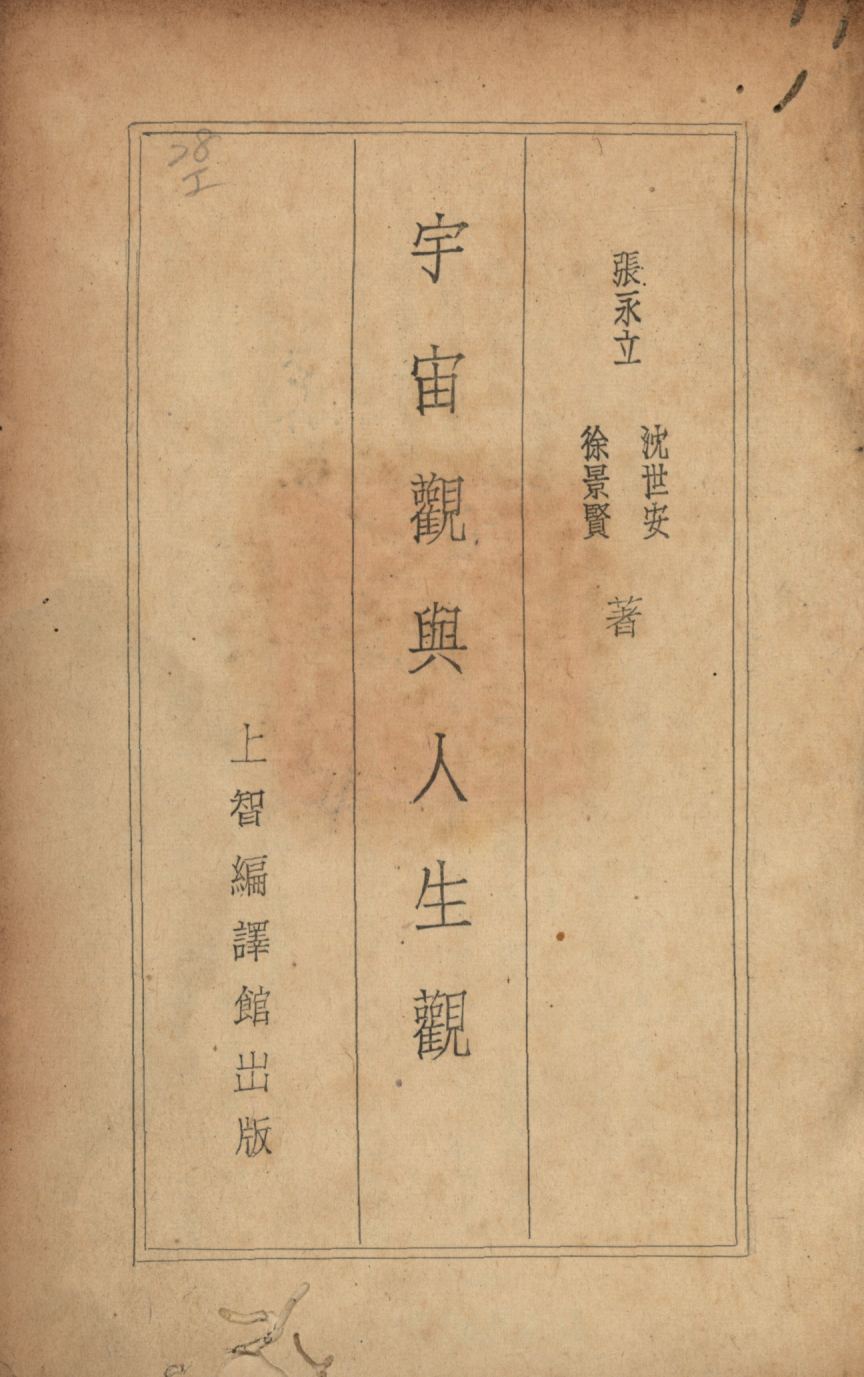 張永立
沈世安
徐景賢
著
宇宙觀與人生觀
上智編譯館出版